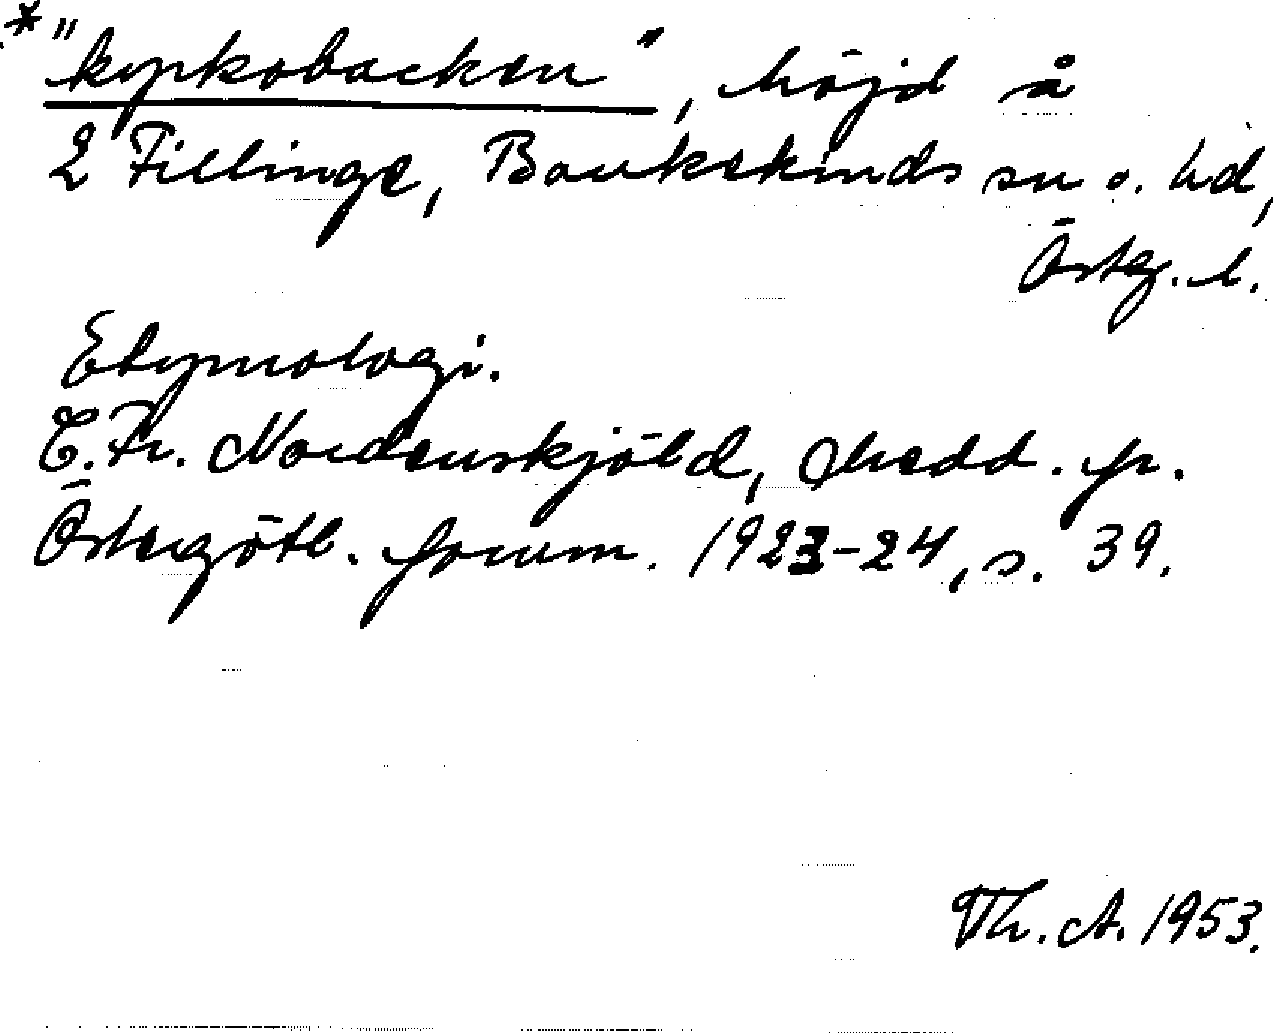 * "kypkobacken", höjd å
L Fillinge, Bankekinds sn o. hd,
Östg. l.
Etymologi.
C. Fr. Nordenskjöld, Medd. fr.
Östergötl. fornm. 1923-24, s. 39.
Th. A. 1953.